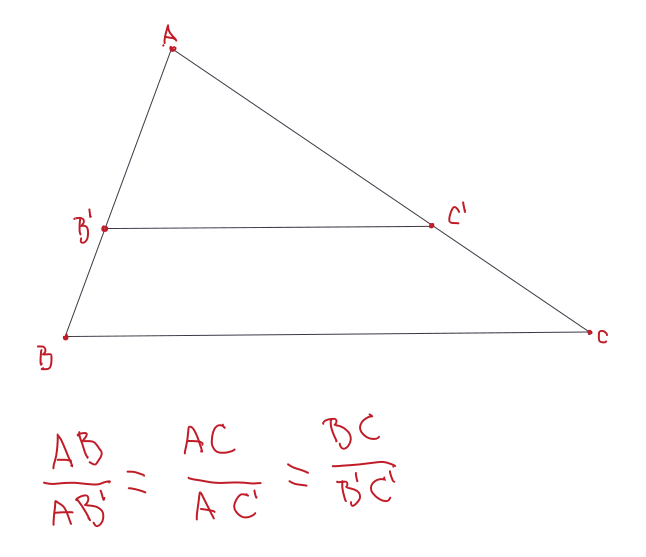 A
B'
C'
B
C
AB/AB' = AC/AC' = BC/B'C'